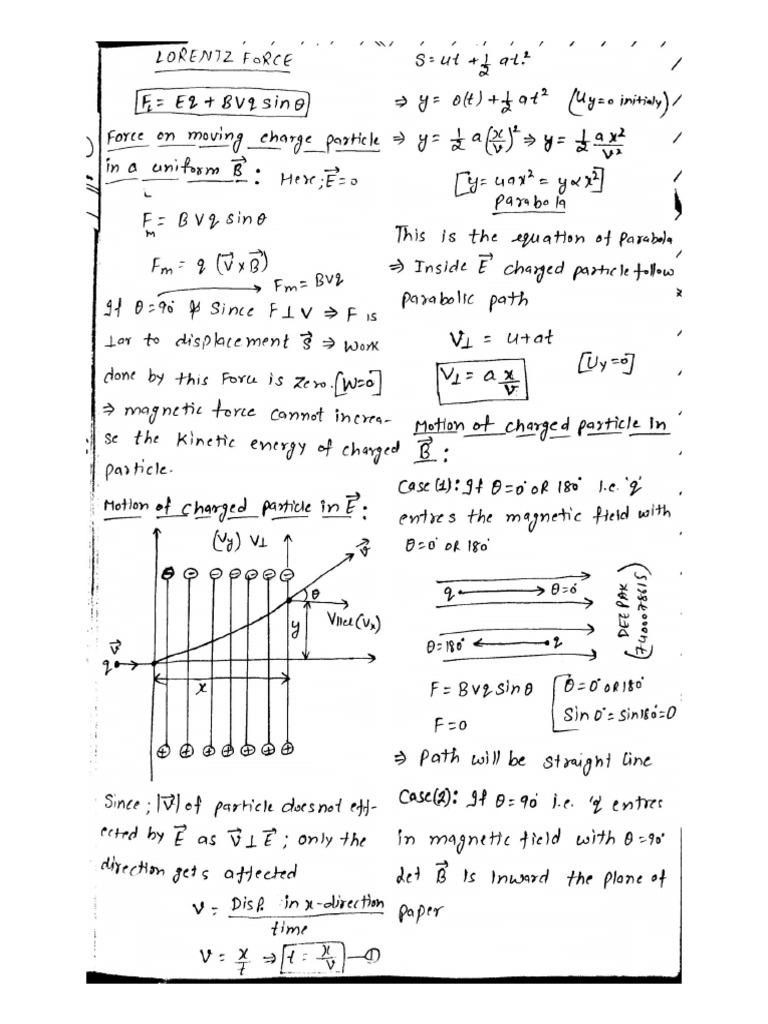 LORENTZ FORCE
F_L = Eq + BVq sin θ
Force on moving charge particle
in a uniform B⃗ : Here; E⃗ = 0
F_m = BVq sin θ
F_m = q (V⃗ × B⃗)
→ F_m = BVq
If θ = 90° & Since F ⊥ V ⇒ F is
⊥ar to displacement S⃗ ⇒ work
done by this Force is zero. [W=0]
⇒ magnetic force cannot increa-
se the kinetic energy of charged
particle.
Motion of charged particle in E⃗ :
(Vy) V⊥
V⃗
θ
V||el (Vx)
y
V⃗
q
x
Since ; |V⃗| of particle does not eff-
ected by E⃗ as V⃗ ⊥ E⃗ ; only the
direction gets affected
V = Disp. in x-direction / time
V = x/t ⇒ t = x/V —①
S = ut + 1/2 at²
⇒ y = 0(t) + 1/2 at² (Uy = 0 initialy)
⇒ y = 1/2 a (x/V)² ⇒ y = 1/2 ax²/V²
[y = uax² = y ∝ x²]
Parabola
This is the equation of Parabola
⇒ Inside E⃗ charged particle follow
parabolic path
V⊥ = u + at
[Uy = 0]
V⊥ = a x/V
Motion of charged particle in
B⃗ :
Case (1): If θ = 0° OR 180° i.e. 'q'
entres the magnetic field with
θ = 0° OR 180°
q θ = 0°
θ = 180° q
DEEPAK
7400078615
F = BVq sin θ [θ = 0° OR 180°
F = 0 Sin 0° = Sin 180 = 0
⇒ Path will be straight line
Case (2): If θ = 90° i.e. 'q' entres
in magnetic field with θ = 90°
Let B⃗ is inward the plane of
paper